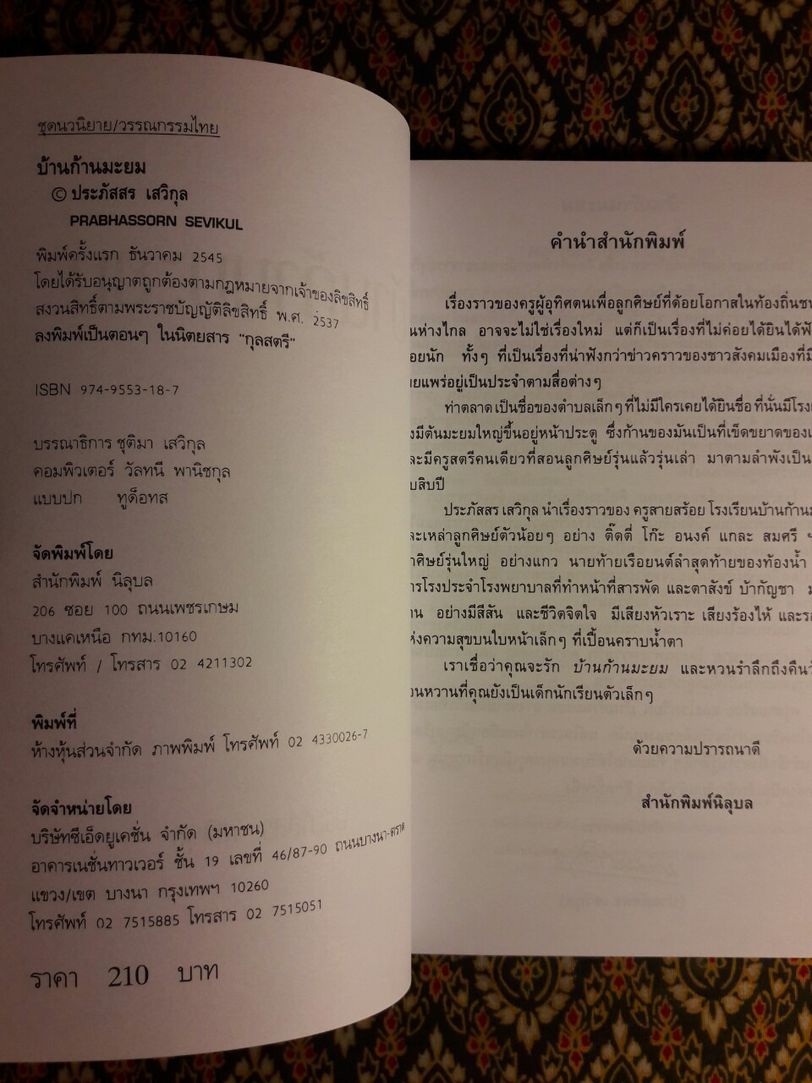 ชุดนวนิยาย/วรรณกรรมไทย
บ้านก้านมะยม
© ประภัสสร เสวิกุล
PRABHASSORN SEVIKUL
พิมพ์ครั้งแรก ธันวาคม 2545
โดยได้รับอนุญาตถูกต้องตามกฎหมายจากเจ้าของลิขสิทธิ์
สงวนสิทธิ์ตามพระราชบัญญัติลิขสิทธิ์ พ.ศ. 2537
ลงพิมพ์เป็นตอนๆ ในนิตยสาร "กุลสตรี"
ISBN 974-9553-18-7
บรรณาธิการ ชุติมา เสวิกุล
คอมพิวเตอร์ วัลทนี พานิชกุล
แบบปก ทูด็อทส
จัดพิมพ์โดย
สำนักพิมพ์ นิลุบล
206 ซอย 100 ถนนเพชรเกษม
บางแคเหนือ กทม.10160
โทรศัพท์ / โทรสาร 02 4211302
พิมพ์ที่
ห้างหุ้นส่วนจำกัด ภาพพิมพ์ โทรศัพท์ 02 4330026-7
จัดจำหน่ายโดย
บริษัทซีเอ็ดยูเคชั่น จำกัด (มหาชน)
อาคารเนชั่นทาวเวอร์ ชั้น 19 เลขที่ 46/87-90 ถนนบางนา-ตราด
แขวง/เขต บางนา กรุงเทพฯ 10260
โทรศัพท์ 02 7515885 โทรสาร 02 7515051
ราคา 210 บาท
คำนำสำนักพิมพ์
เรื่องราวของครูผู้อุทิศตนเพื่อลูกศิษย์ที่ด้อยโอกาสในท้องถิ่น
ห่างไกล อาจจะไม่ใช่เรื่องใหม่ แต่ก็เป็นเรื่องที่ไม่ค่อยได้ยินได้
นัก ทั้งๆ ที่เป็นเรื่องที่น่าฟังกว่าข่าวคราวของชาวสังคมเมืองที่
แพร่อยู่เป็นประจำตามสื่อต่างๆ
ท่าตลาด เป็นชื่อของตำบลเล็กๆ ที่ไม่มีใครเคยได้ยินชื่อ ที่นั่นมี
มีต้นมะยมใหญ่ขึ้นอยู่หน้าประตู ซึ่งก้านของมันเป็นที่เข็ดขยาดของ
มีครูสตรีคนเดียวที่สอนลูกศิษย์รุ่นแล้วรุ่นเล่า มาตามลำพังเป็น
สิบปี
ประภัสสร เสวิกุล นำเรื่องราวของ ครูสายสร้อย โรงเรียนบ้านก้าน
เหล่าลูกศิษย์ตัวน้อยๆ อย่าง ติ๊ดตี่ โก๊ะ อนงค์ แกละ สมศรี ฯ
ศิษย์รุ่นใหญ่ อย่างแกว นายท้ายเรือยนต์ลำสุดท้ายของท้องน้ำ
การโรงประจำโรงพยาบาลที่ทำหน้าที่สารพัด และตาสังข์ บ้ากัญชา
อย่างมีสีสัน และชีวิตจิตใจ มีเสียงหัวเราะ เสียงร้องไห้ และ
แห่งความสุขบนใบหน้าเล็กๆ ที่เปื้อนคราบน้ำตา
เราเชื่อว่าคุณจะรัก บ้านก้านมะยม และหวนรำลึกถึงคืน
หวานที่คุณยังเป็นเด็กนักเรียนตัวเล็กๆ
ด้วยความปรารถนาดี
สำนักพิมพ์นิลุบล